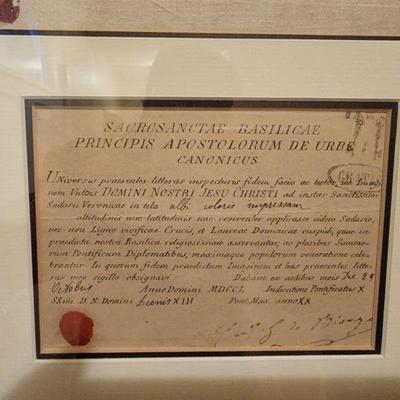 SACROSANCTAE BASILICAE
PRINCIPIS APOSTOLORUM DE URBE
CANONICUS
GRATIS
UNiversis praesentes litteras inspecturis fidem facio ac testor
nem Vultus DOMINI NOSTRI JESU CHRISTI ad instar Sanctissimi
Sudarii Veronicae in tela albi coloris impressam
altitudinis unc. latitudinis unc. reverenter applicasse eidem Sudario,
nec-non Ligno vivificae Crucis, et Lanceae Dominicae cuspidi, quae in
praedicta nostra Basilica religiosissime asservantur, ac pluribus Summo-
rum Pontificum Diplomatibus, maximaque populorum veneratione cele-
brantur. In quorum fidem praedictam Imaginem et has praesentes litte-
ras meo sigillo obsignavi. Dabam ex aedibus meis 29
Octobris Anno Domini MDCCL Indictione Pontificatus X
SSmi D. N. Domini Leonis XIII Pont. Max. anno XX